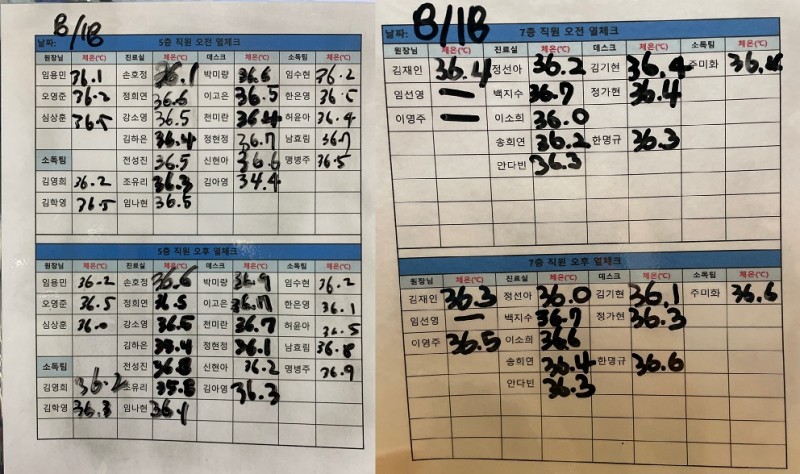 날짜: 8/18
5층 직원 오전 열체크
원장님 체온(℃) 진료실 체온(℃) 데스크 체온(℃) 소독팀 체온(℃)
임용민 36.1 손호정 36.1 박미량 36.6 임수현 36.2
오영준 36.2 정희연 36.6 이고은 36.5 한은영 36.5
심상훈 36.5 강소영 36.5 천미란 36.4 허윤아 36.4
김하은 36.4 정현정 36.7 남효림 36.7
소독팀 전성진 36.5 신현아 36.6 맹병주 36.5
김영희 36.2 조유리 36.3 김아영 34.4
김학영 36.5 임나현 36.5
5층 직원 오후 열체크
원장님 체온(℃) 진료실 체온(℃) 데스크 체온(℃) 소독팀 체온(℃)
임용민 36.2 손호정 36.6 박미량 36.9 임수현 36.2
오영준 36.5 정희연 36.5 이고은 한은영 36.1
심상훈 36.0 강소영 36.5 천미란 36.7 허윤아 36.5
김하은 정현정 36.1 남효림 36.8
소독팀 전성진 36.8 신현아 36.2 맹병주 36.9
김영희 36.2 조유리 35.8 김아영 36.3
김학영 36.3 임나현 36.1
날짜: 8/18
7층 직원 오전 열체크
원장님 체온(℃) 진료실 체온(℃) 데스크 체온(℃) 소독팀 체온(℃)
김재인 36.4 정선아 36.2 김기현 36.4 주미화 36.4
임선영 — 백지수 36.7 정가현 36.4
이영주 — 이소희 36.0
송희연 36.2 한명규 36.3
안다빈 36.3
7층 직원 오후 열체크
원장님 체온(℃) 진료실 체온(℃) 데스크 체온(℃) 소독팀 체온(℃)
김재인 36.3 정선아 36.0 김기현 36.1 주미화 36.6
임선영 — 백지수 36.7 정가현 36.3
이영주 36.5 이소희 36.6
송희연 36.4 한명규 36.6
안다빈 36.3